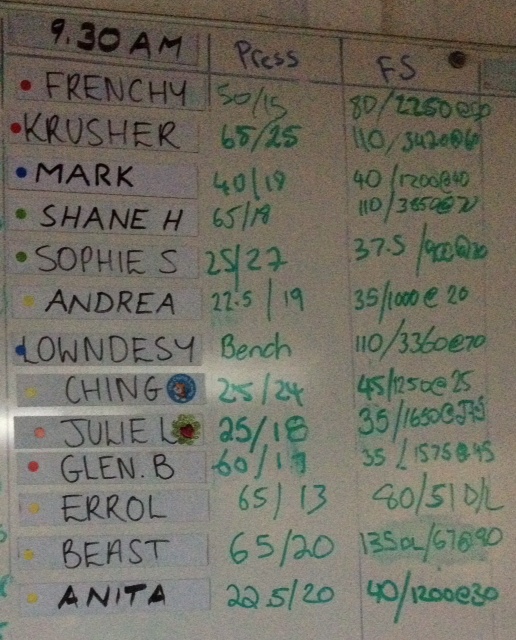 9.30 AM Press FS
FRENCHY 50/15 80/2250@50
KRUSHER 65/25 110/3420@60
MARK 40/19 40/1200@40
SHANE H 65/18 110/3850@70
SOPHIE S 25/27 37.5/900@
ANDREA 22.5/19 35/1000@20
LOWNDESY Bench 110/3360@70
CHING 25/24 45/1250@25
JULIE L 25/18 35/1650@
GLEN.B 60/ 35/1575@45
ERROL 65/13 80/51 D/L
BEAST 65/20
ANITA 22.5/20 40/1200@30